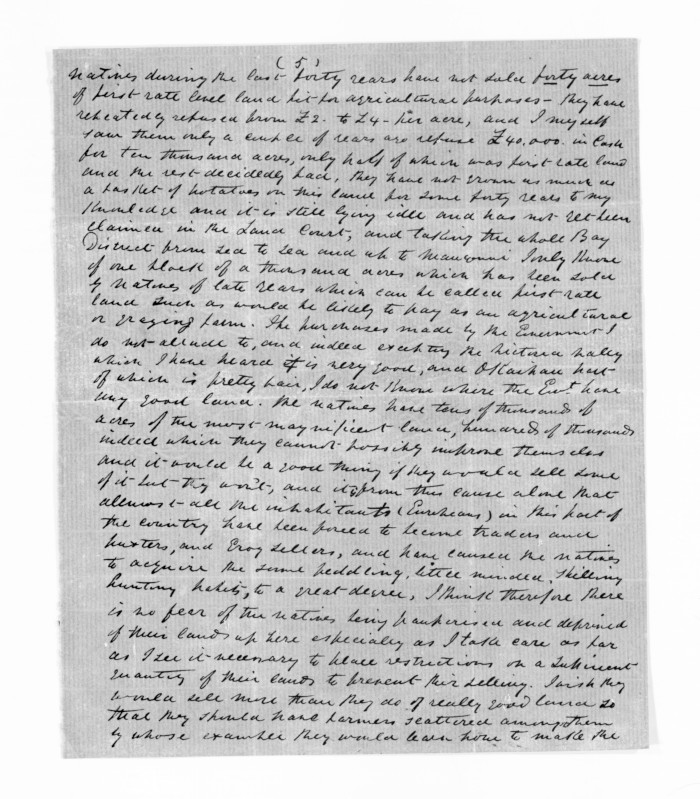 (5)
Natives during the last forty years have not sold forty acres
of first rate level land fit for agricultural purposes - they have
repeatedly refused from £2. to £4 - per acre, and I myself
saw them only a couple of years ago refuse £40,000. in Cash
for ten thousand acres, only half of which was first rate land
and the rest decidedly bad, they have not grown as much as
a basket of potatoes on this land for some forty years to my
Knowledge and it is still lying idle and has not yet been
claimed in the Land Court, and taking the whole Bay
District from Sea to Sea and up to Maungonui I only Know
of one block of a thousand acres which has been sold
by Natives of late years which can be called first rate
land such as would be likely to pay as an agricultural
or grazing farm. The purchases made by the Government I
do not allude to, and indeed excepting the Victoria Valley
which I have heard is very good, and Okaihau part
of which is pretty fair, I do not Know where the Govt. have
any good land. The natives have tens of thousands of
acres of the most magnificent land, hundreds of thousands
indeed which they cannot possibly improve themselves
and it would be a good thing if they would sell some
of it but they won't, and it is from this cause alone that
allmost all the inhabitants (Europeans) in this part of
the country have been forced to become traders and
huxters, and Grog sellers, and have caused the natives
to acquire the same peddling, little minded, Shilling
hunting habits, to a great degree, I think therefore there
is no fear of the natives being pauperised and deprived
of their lands up here especially as I take care as far
as I see it necessary to place restrictions on a sufficient
quantity of their lands to prevent their selling. I wish they
would sell more than they do of really good land so
that they should have farmers scattered among them
by whose example they would learn how to make the